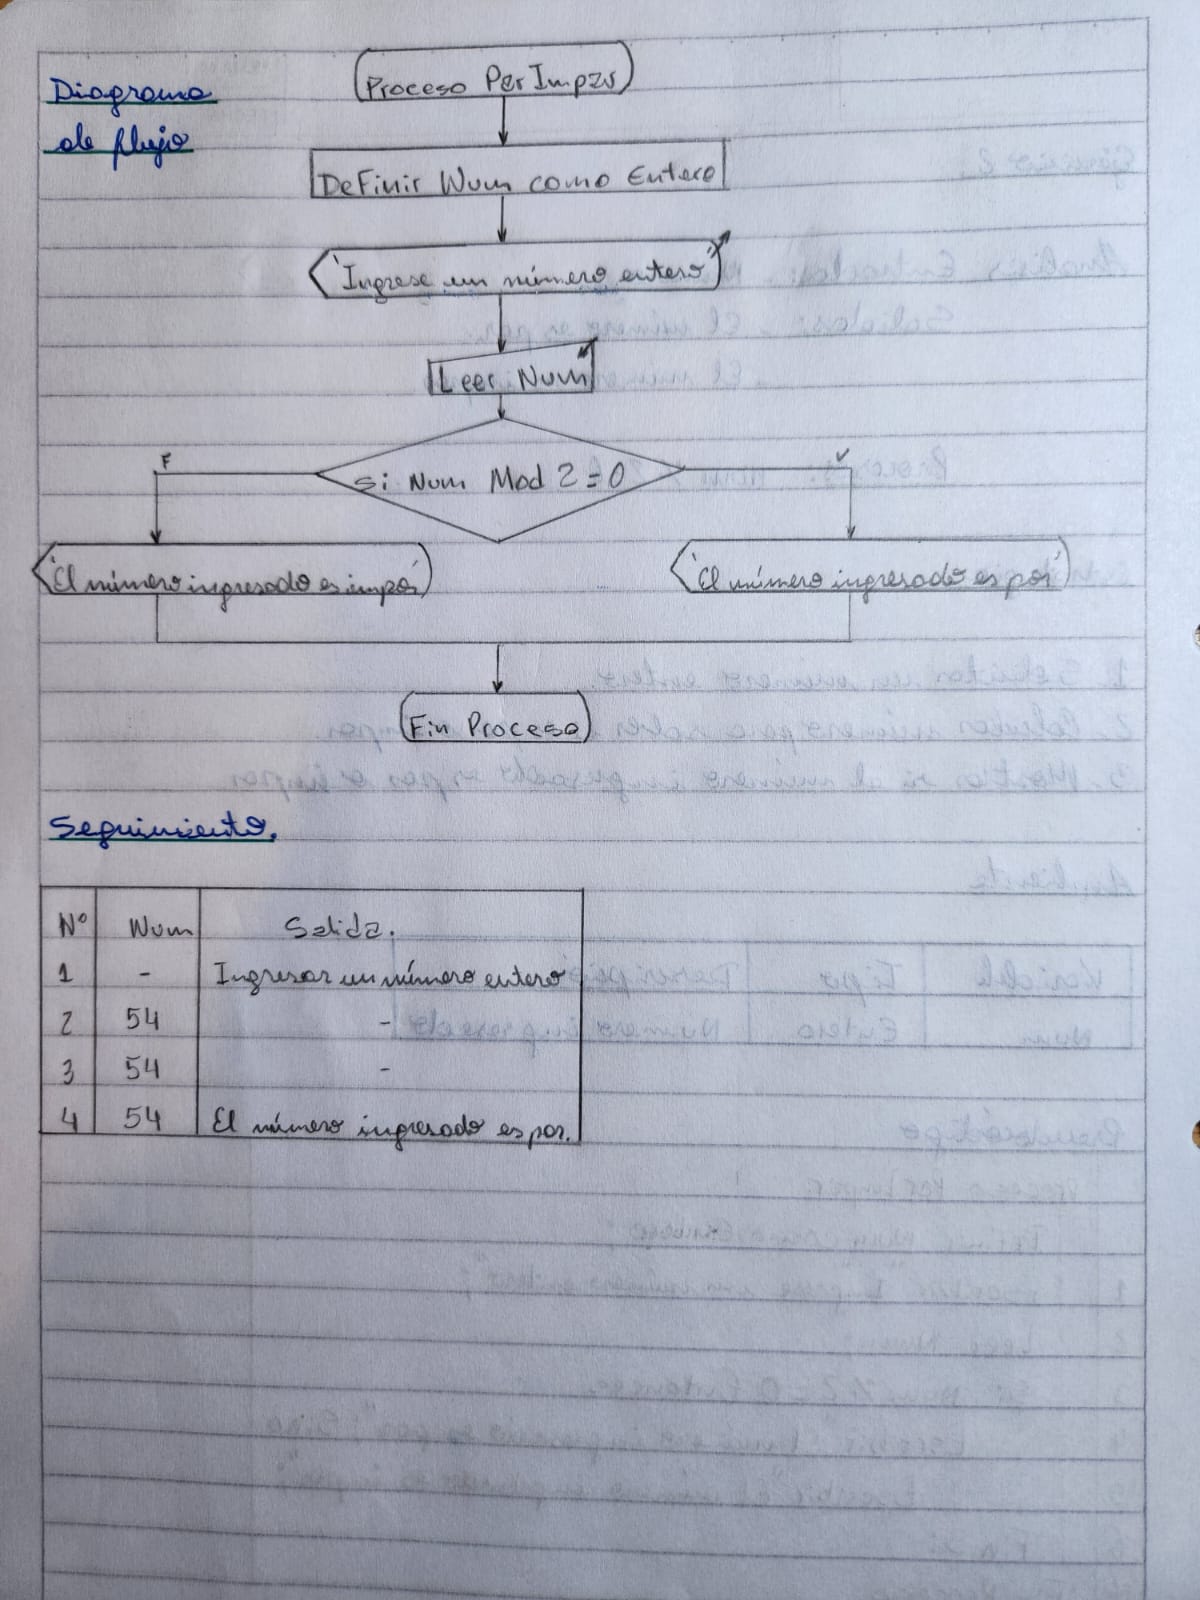 Diagrama
de flujo
Proceso ParImpar
Definir Num como Entero
'Ingrese un número entero'
Leer Num
F
V
Si Num Mod 2=0
'El número ingresado es impar'
'El número ingresado es par'
Fin Proceso
Seguimiento.
Nº Num Salida.
1 - Ingresar un número entero
2 54 -
3 54 -
4 54 El número ingresado es par.